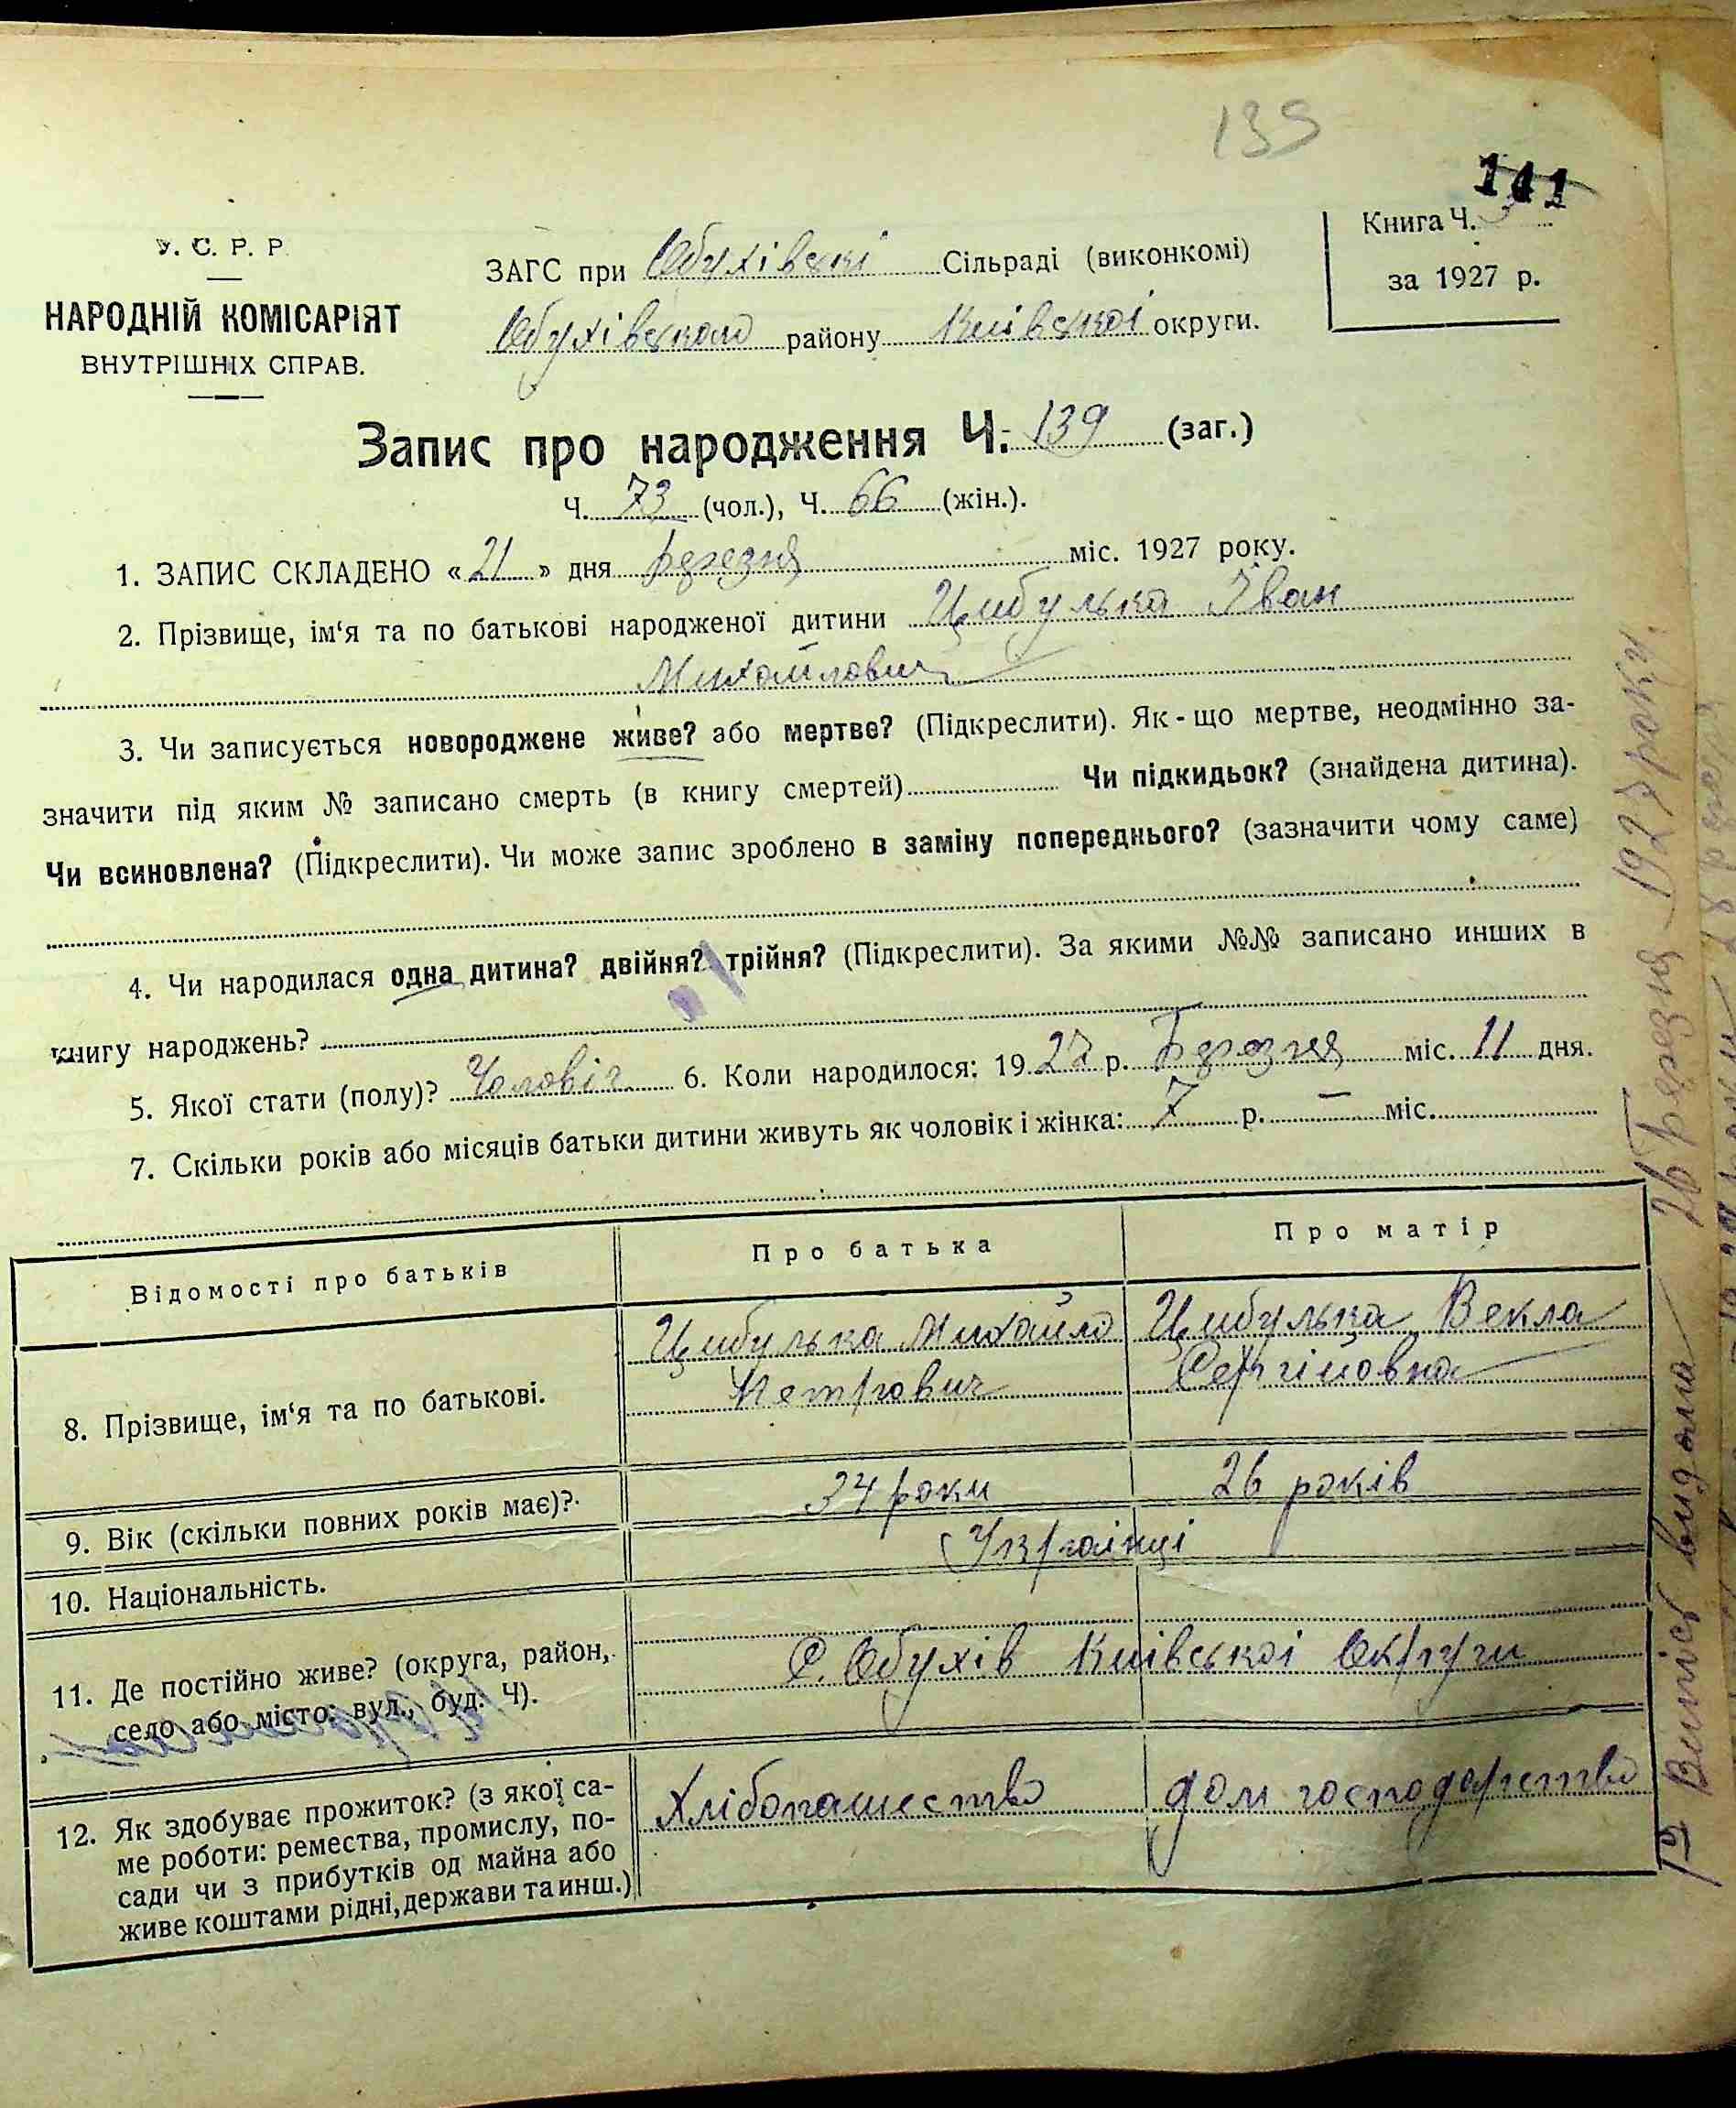 139
141
У. С. Р. Р.
НАРОДНІЙ КОМІСАРІЯТ
ВНУТРІШНІХ СПРАВ.
ЗАГС при Обухівські Сільраді (виконкомі)
Обухівського району Київської округи.
Книга Ч.
за 1927 р.
Запис про народження Ч. 139 (заг.)
Ч. 73 (чол.), Ч. 66 (жін.).
1. ЗАПИС СКЛАДЕНО «21» дня Березня міс. 1927 року.
2. Прізвище, ім‘я та по батькові народженої дитини Цибулька Іван
Михайлович
3. Чи записується новороджене живе? або мертве? (Підкреслити). Як-що мертве, неодмінно за-
значити під яким № записано смерть (в книгу смертей) Чи підкидьок? (знайдена дитина).
Чи всиновлена? (Підкреслити). Чи може запис зроблено в заміну попереднього? (зазначити чому саме)
4. Чи народилася одна дитина? двійня? трійня? (Підкреслити). За якими №№ записано инших в
книгу народжень?
5. Якої стати (полу)? Чоловіч. 6. Коли народилося: 1927 р. Березня міс. 11 дня.
7. Скільки років або місяців батьки дитини живуть як чоловік і жінка: 7 р. — міс.
Відомості про батьків
Про батька
Про матір
8. Прізвище, ім‘я та по батькові.
Цибулька Михайло
Петрович
Цибулька Векла
Сергійовна
9. Вік (скільки повних років має)?
34 роки
26 років
10. Національність.
Українці
11. Де постійно живе? (округа, район,
село або місто: вул., буд. Ч).
С. Обухів Київської Округи
12. Як здобуває прожиток? (з якої са-
ме роботи: ремества, промислу, по-
сади чи з прибутків од майна або
живе коштами рідні, держави та инш.)
Хлібопашество
дом господарство
Витіс видана 26 Березня 1927 року.